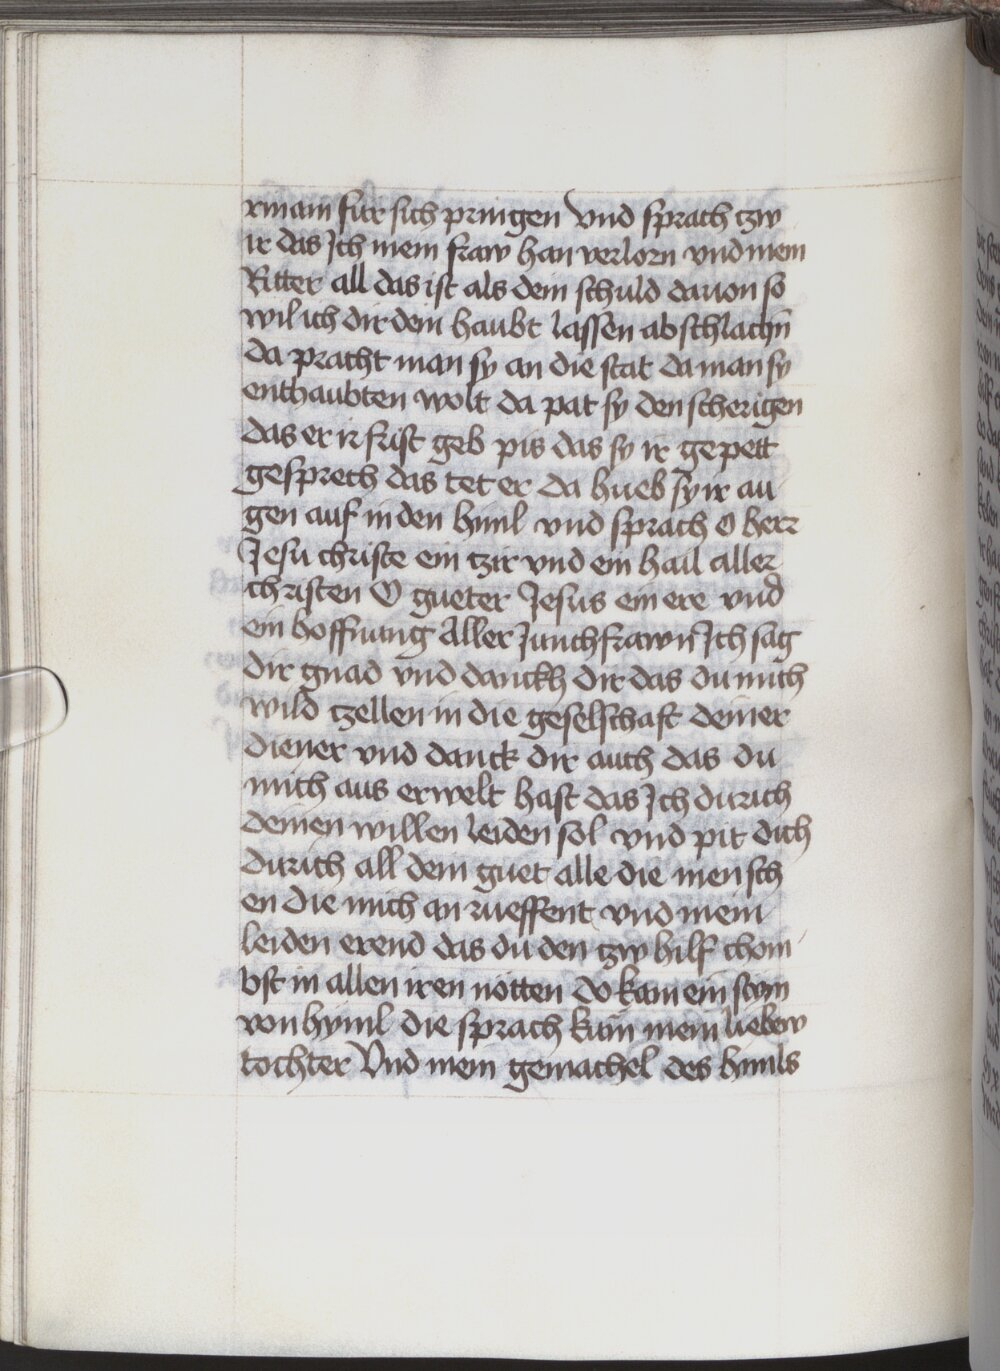 rinam fur sich pringen Vnd sprach czw
ir das Ich mein fraw han verlorn vnd mein
Ritter all das ist als dein schuld dauon so
wil ich dir dein haubt lassen abschlachn̄
da pracht man sy an die stat da man sy
enthaubten wolt da pat sy den scherigen
das er ir frist geb pis das sy ir gepett
gesprech das tet er da hueb sy ir au
gen auf in den himl vnd sprach O herr
Jesu christe ein tzir vnd ein hail aller
christen O gueter Jesus ein ere vnd
ein hoffnung Aller Junchfrawn̄ Ich sag
dir gnad vnd danckh dir das du mich
wild tzellen in die geselschaft deiner
diener vnd danck dir auch das du
mich aus erwelt hast das Ich durich
deinen willen leiden sol vnd pit dich
durich all dein guet alle die mensch
en die mich an rueffent vnd mein
leiden erend das du den tzw hilf chom
bst in allen iren nötten do kam ein stym
von hyml die sprach kum mein liebew
tochter Vnd mein gemachel des himls